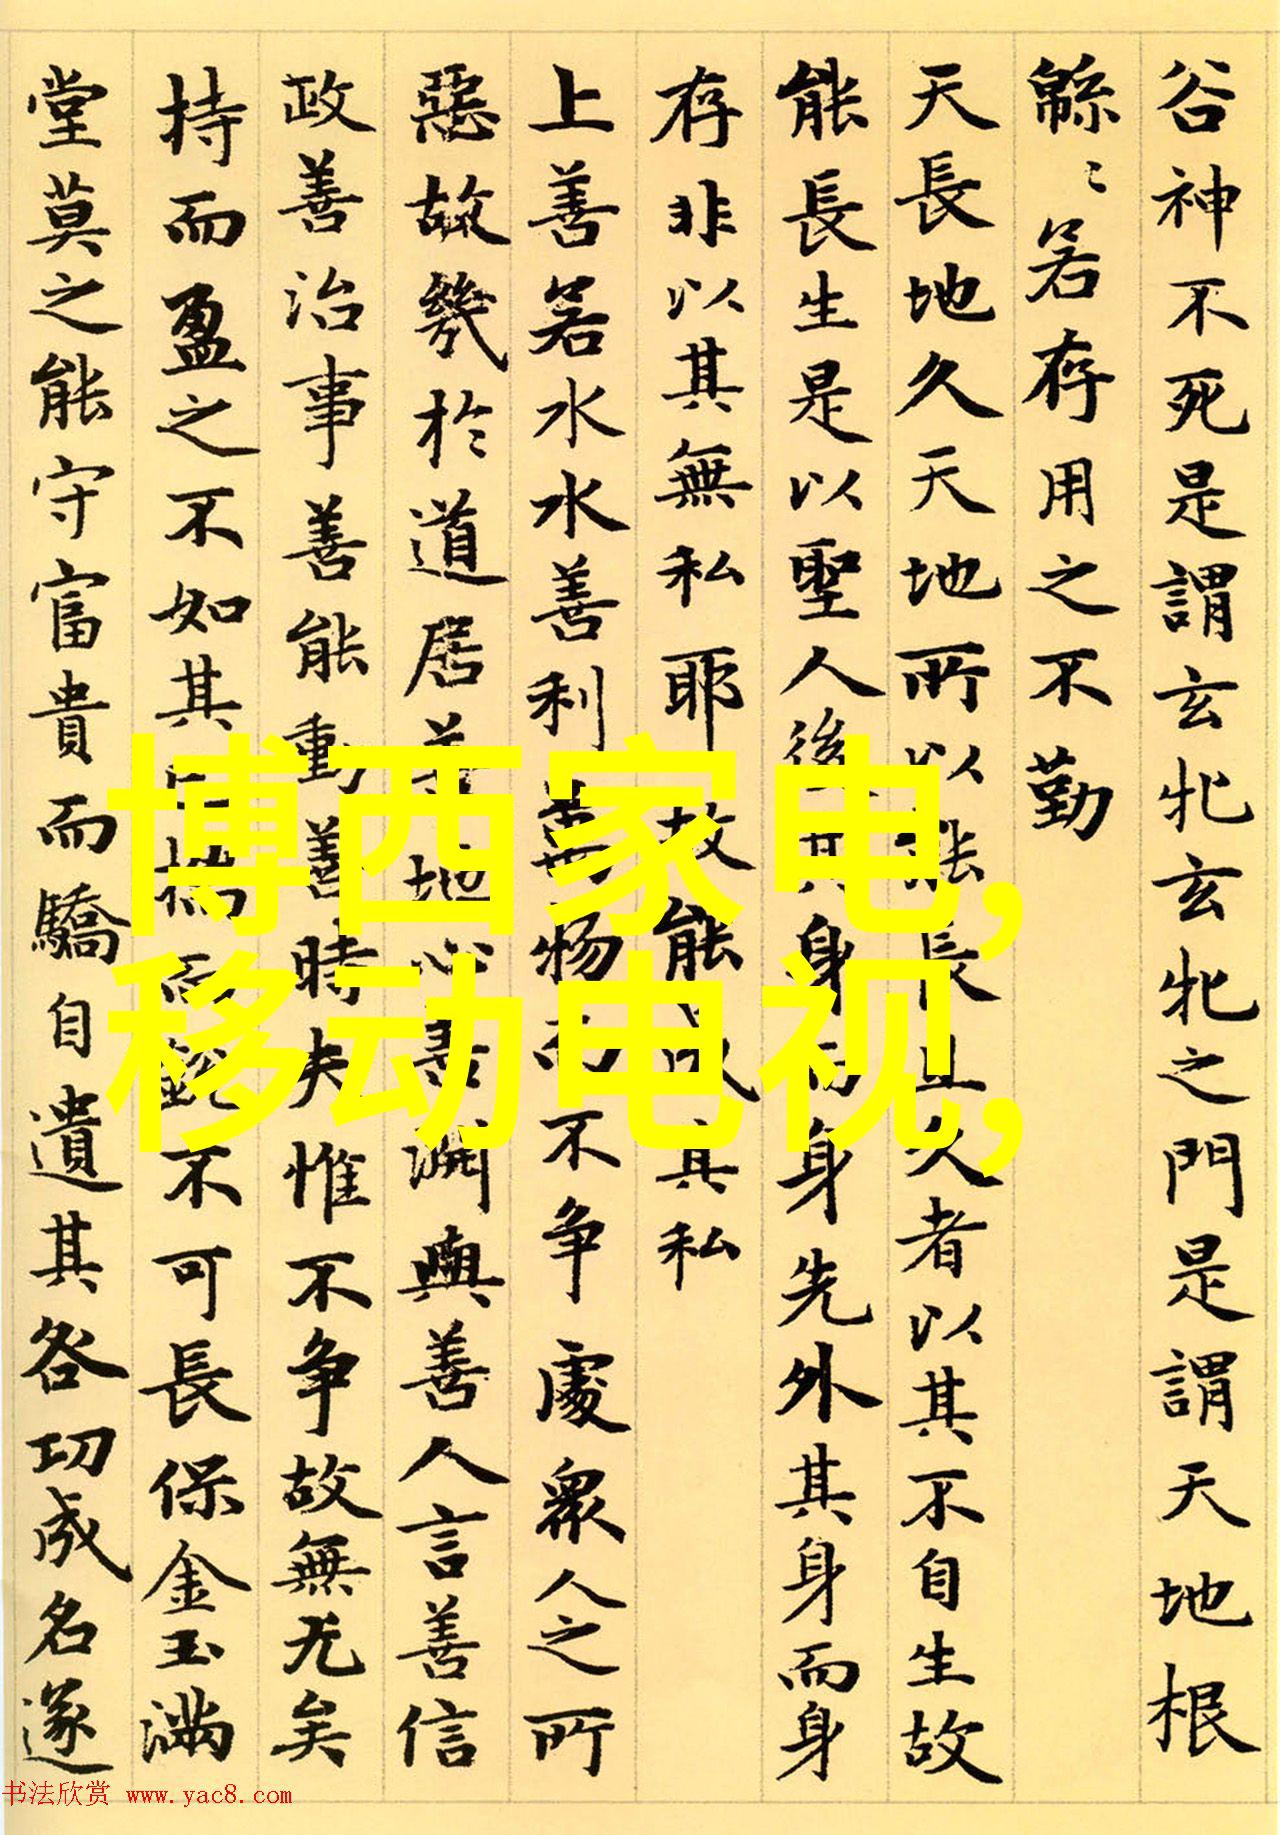 谷神不死是謂玄牝玄牝之門是謂天地根
緜〻若存用之不勤
天長地久天地所以能長且久者以其不自生故
能長生是以聖人後其身而身先外其身而身
存非以其無私耶故能成其私
上善若水水善利萬物而不争處衆人之所
惡故幾於道居善地心善渊與善人言善信
政善治事善能動善時夫惟不争故無尤矣
持而盈之不如其已揣而銳不可長保金玉滿
堂莫之能守富貴而驕自遺其咎功成名遂
博西家电,
移动电视,
书法欣赏 www.yac8.com